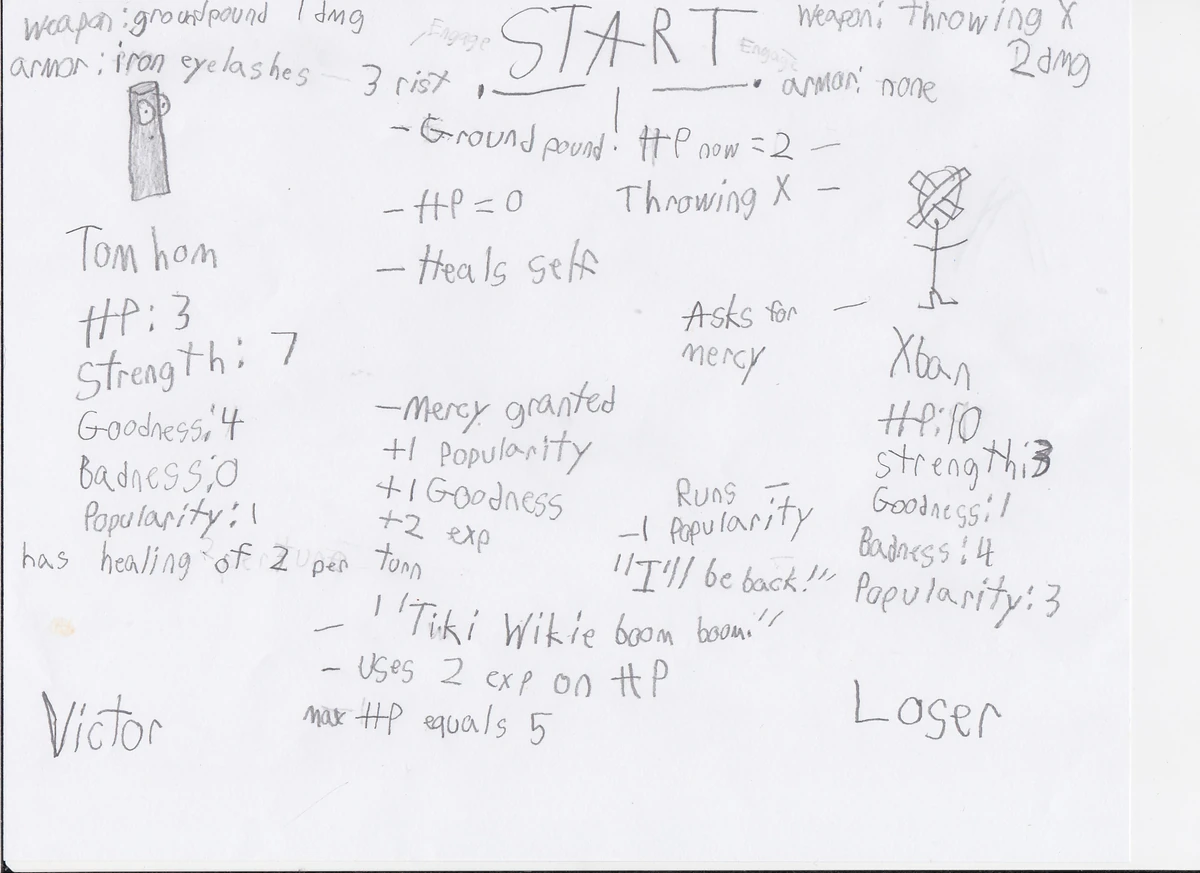 weapon: groundpound 1 dmg
armor: iron eyelashes
3 rist
Engage
START
Engage
weapon: Throwing X
2 dmg
armor: none
- Ground pound! HP now = 2 -
- HP = 0
Throwing X -
- Heals self
Asks for -
mercy
Tom hom
HP: 3
Strength: 7
Goodness: 4
Badness: 0
Popularity: 1
has healing of 2 per turn
Xban
HP: 10
strength: 3
Goodness: 1
Badness: 4
Popularity: 3
- Mercy granted
+1 Popularity
+1 Goodness
+2 exp
Runs -
-1 Popularity
"I'll be back!"
- "Tiki Wikie boom boom."
- Uses 2 exp on HP
max HP equals 5
Victor
Loser